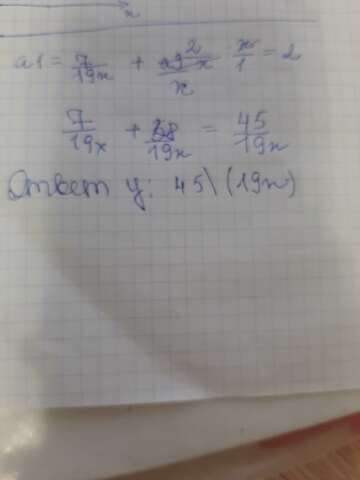 x
a1 = 7/19x + 2/x · x/1 = 2
7/19x + 38/19x = 45/19x
Ответ y: 45\(19x)